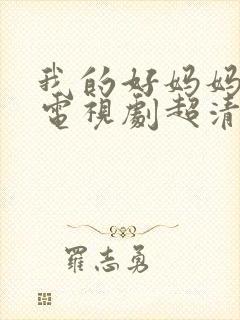 我的好妈妈
電視劇超清
羅志勇